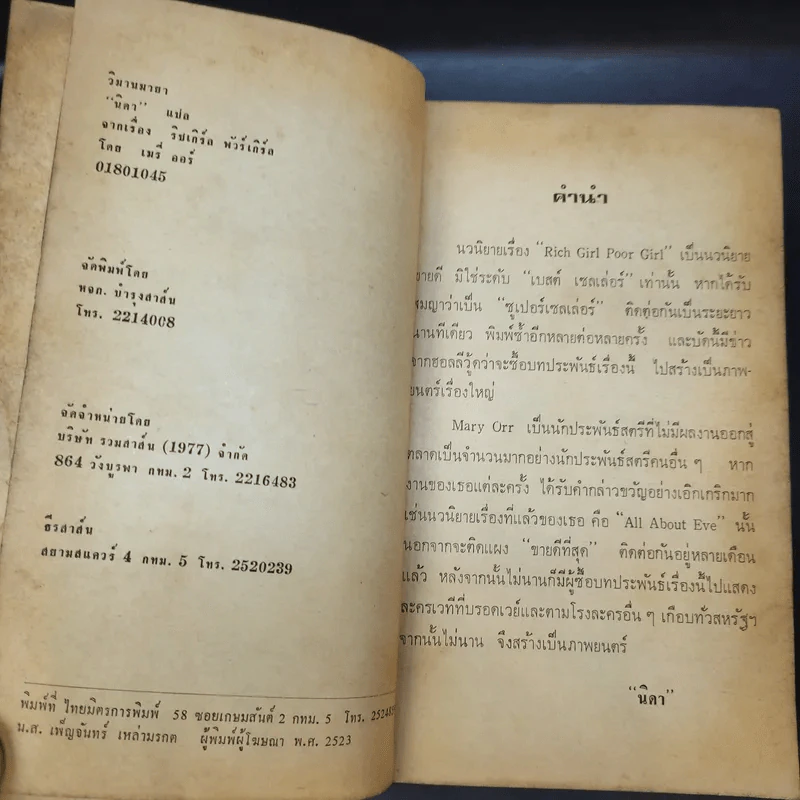 วิมานมายา
“นิดา” แปล
จากเรื่อง ริชเกิร์ล พัวร์เกิร์ล
โดย เมรี่ ออร์
01801045
จัดพิมพ์โดย
หจก. บำรุงสาส์น
โทร. 2214008
จัดจำหน่ายโดย
บริษัท รวมสาส์น (1977) จำกัด
864 วังบูรพา กทม. 2 โทร. 2216483
ธีรสาส์น
สยามสแควร์ 4 กทม. 5 โทร. 2520239
พิมพ์ที่ ไทยมิตรการพิมพ์ 58 ซอยเกษมสันต์ 2 กทม. 5 โทร.
น.ส. เพ็ญจันทร์ เหล่ามรกต ผู้พิมพ์ผู้โฆษณา พ.ศ. 2523
คำนำ
นวนิยายเรื่อง “Rich Girl Poor Girl” เป็นนวนิยาย
ขายดี มิใช่ระดับ “เบสต์ เซลเล่อร์” เท่านั้น หากได้รับ
สมญาว่าเป็น “ซูเปอร์เซลเล่อร์” ติดต่อกันเป็นระยะยาว
นานทีเดียว พิมพ์ซ้ำอีกหลายต่อหลายครั้ง และบัดนี้มีข่าว
จากฮอลลีวู้ดว่าจะซื้อบทประพันธ์เรื่องนี้ ไปสร้างเป็นภาพ-
ยนตร์เรื่องใหญ่
Mary Orr เป็นนักประพันธ์สตรีที่ไม่มีผลงานออกสู่
ตลาดเป็นจำนวนมากอย่างนักประพันธ์สตรีคนอื่น ๆ หาก
งานของเธอแต่ละครั้ง ได้รับคำกล่าวขวัญอย่างเอิกเกริกมาก
เช่นนวนิยายเรื่องที่แล้วของเธอ คือ “All About Eve” นั้น
นอกจากจะติดแผง “ขายดีที่สุด” ติดต่อกันอยู่หลายเดือน
แล้ว หลังจากนั้นไม่นานก็มีผู้ซื้อบทประพันธ์เรื่องนี้ไปแสดง
ละครเวทีที่บรอดเวย์และตามโรงละครอื่น ๆ เกือบทั่วสหรัฐฯ
จากนั้นไม่นาน จึงสร้างเป็นภาพยนตร์
“นิดา”